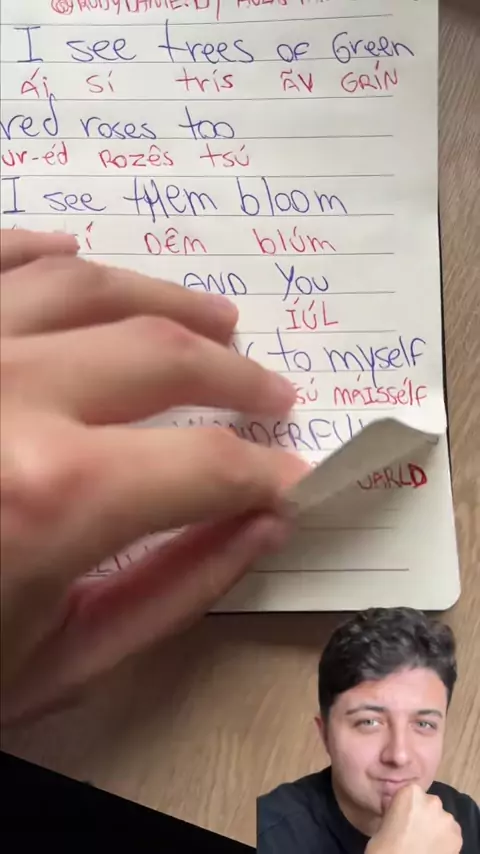 I see trees of Green
Ái sí trís ÃV GRÍN
red roses too
ur-éd Rozês tsú
I see them bloom
sí DÊM blúm
AND YOU
ÍÚL
to myself
tsú MÁISSÉLF
WONDERFUL
UARLD